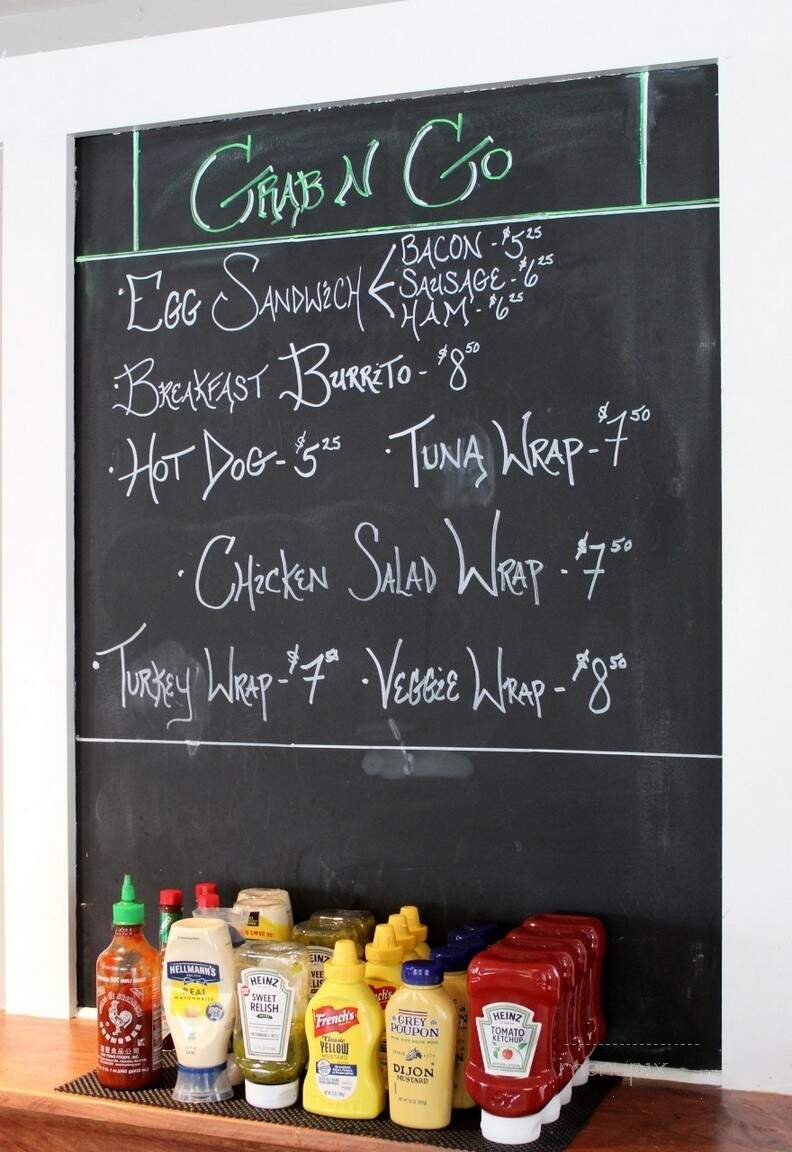 GRAB N GO
BACON - $5.25
· EGG SANDWiCH < SAUSAGE - $6.25
HAM - $6.25
· BREAKFAST BURRiTO - $8.50
· HOT DOG - $5.25 · TUNA WRAP - $7.50
· CHiCKEN SALAD WRAP - $7.50
· TURKEY WRAP - $7.50 · VEGGiE WRAP - $8.50
HELLMANN'S
REAL
MAYONNAISE
HEINZ
SWEET
RELISH
French's
Classic
YELLOW
MUSTARD
GREY
POUPON
DIJON
MUSTARD
HEINZ
TOMATO
KETCHUP